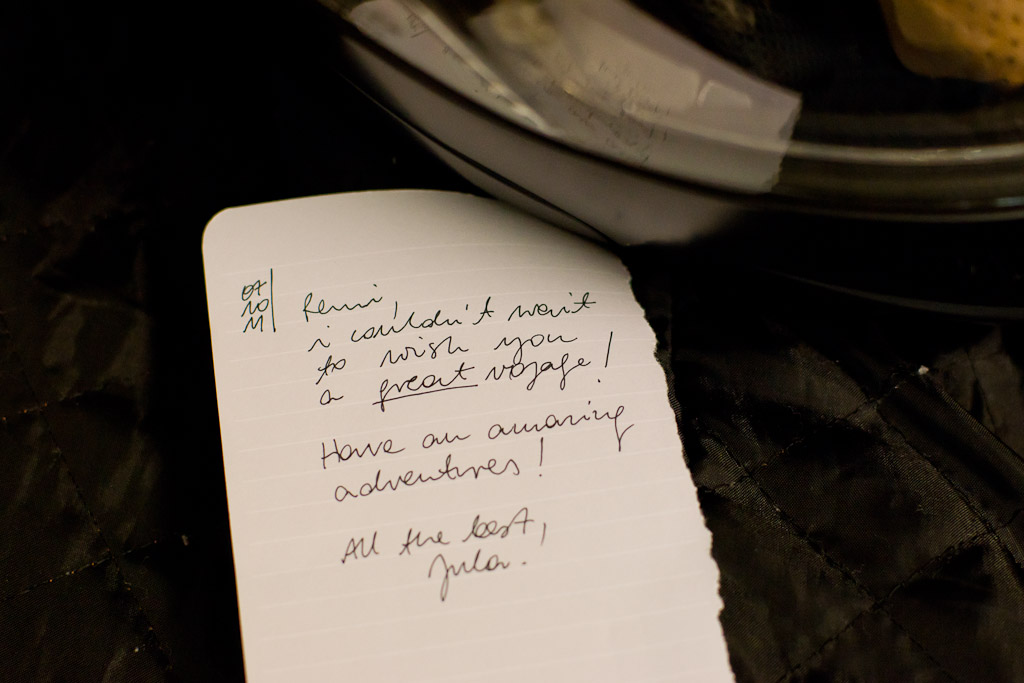 07
10
11
Remi,
i couldn't wait
to wish you
a great voyage!
Have an amazing
adventures!
All the best,
Jula.